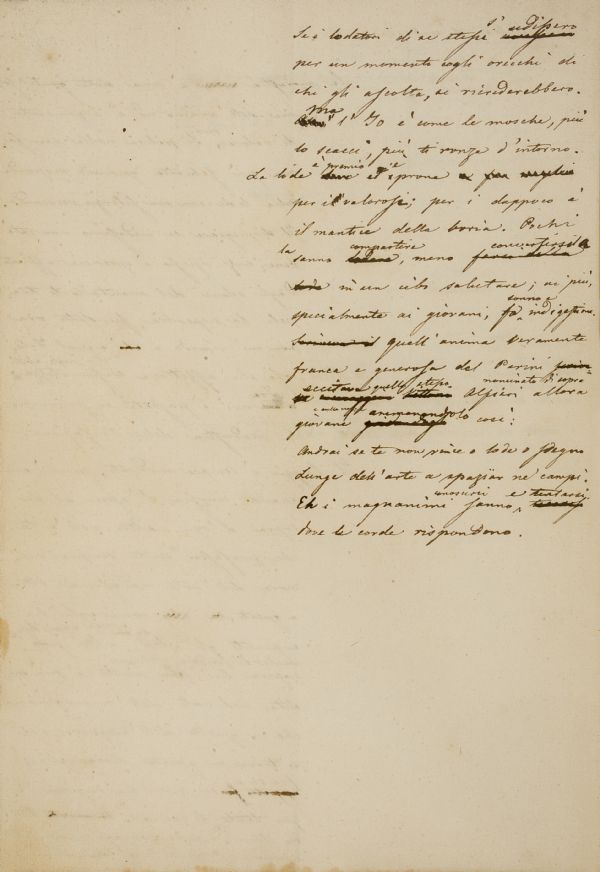 Se i lodatori di se stessi s' udissero
per un momento cogli orecchi di
chi gli ascolta, si ricrederebbero.
Ma l' Io è come le mosche, più
lo scacci, più ti ronza d'intorno.
La lode è premio e sprone
per i valorosi; per i dappoco è
il mantice della boria. Pochi
la sanno compartire, meno convertirsela
in un cibo salutare; ai più,
specialmente ai giovani, fa sonno e indigestione.
quell'anima veramente
franca e generosa del Parini
eccitava quello stesso nominato di sopra Alfieri allora
giovane animandolo così:
Andrai se te non vince o lode o sdegno
Lunge dell'arte a spaziar ne' campi.
Eh i magnanimi sanno conoscersi e tentarsi
dove le corde rispondono.